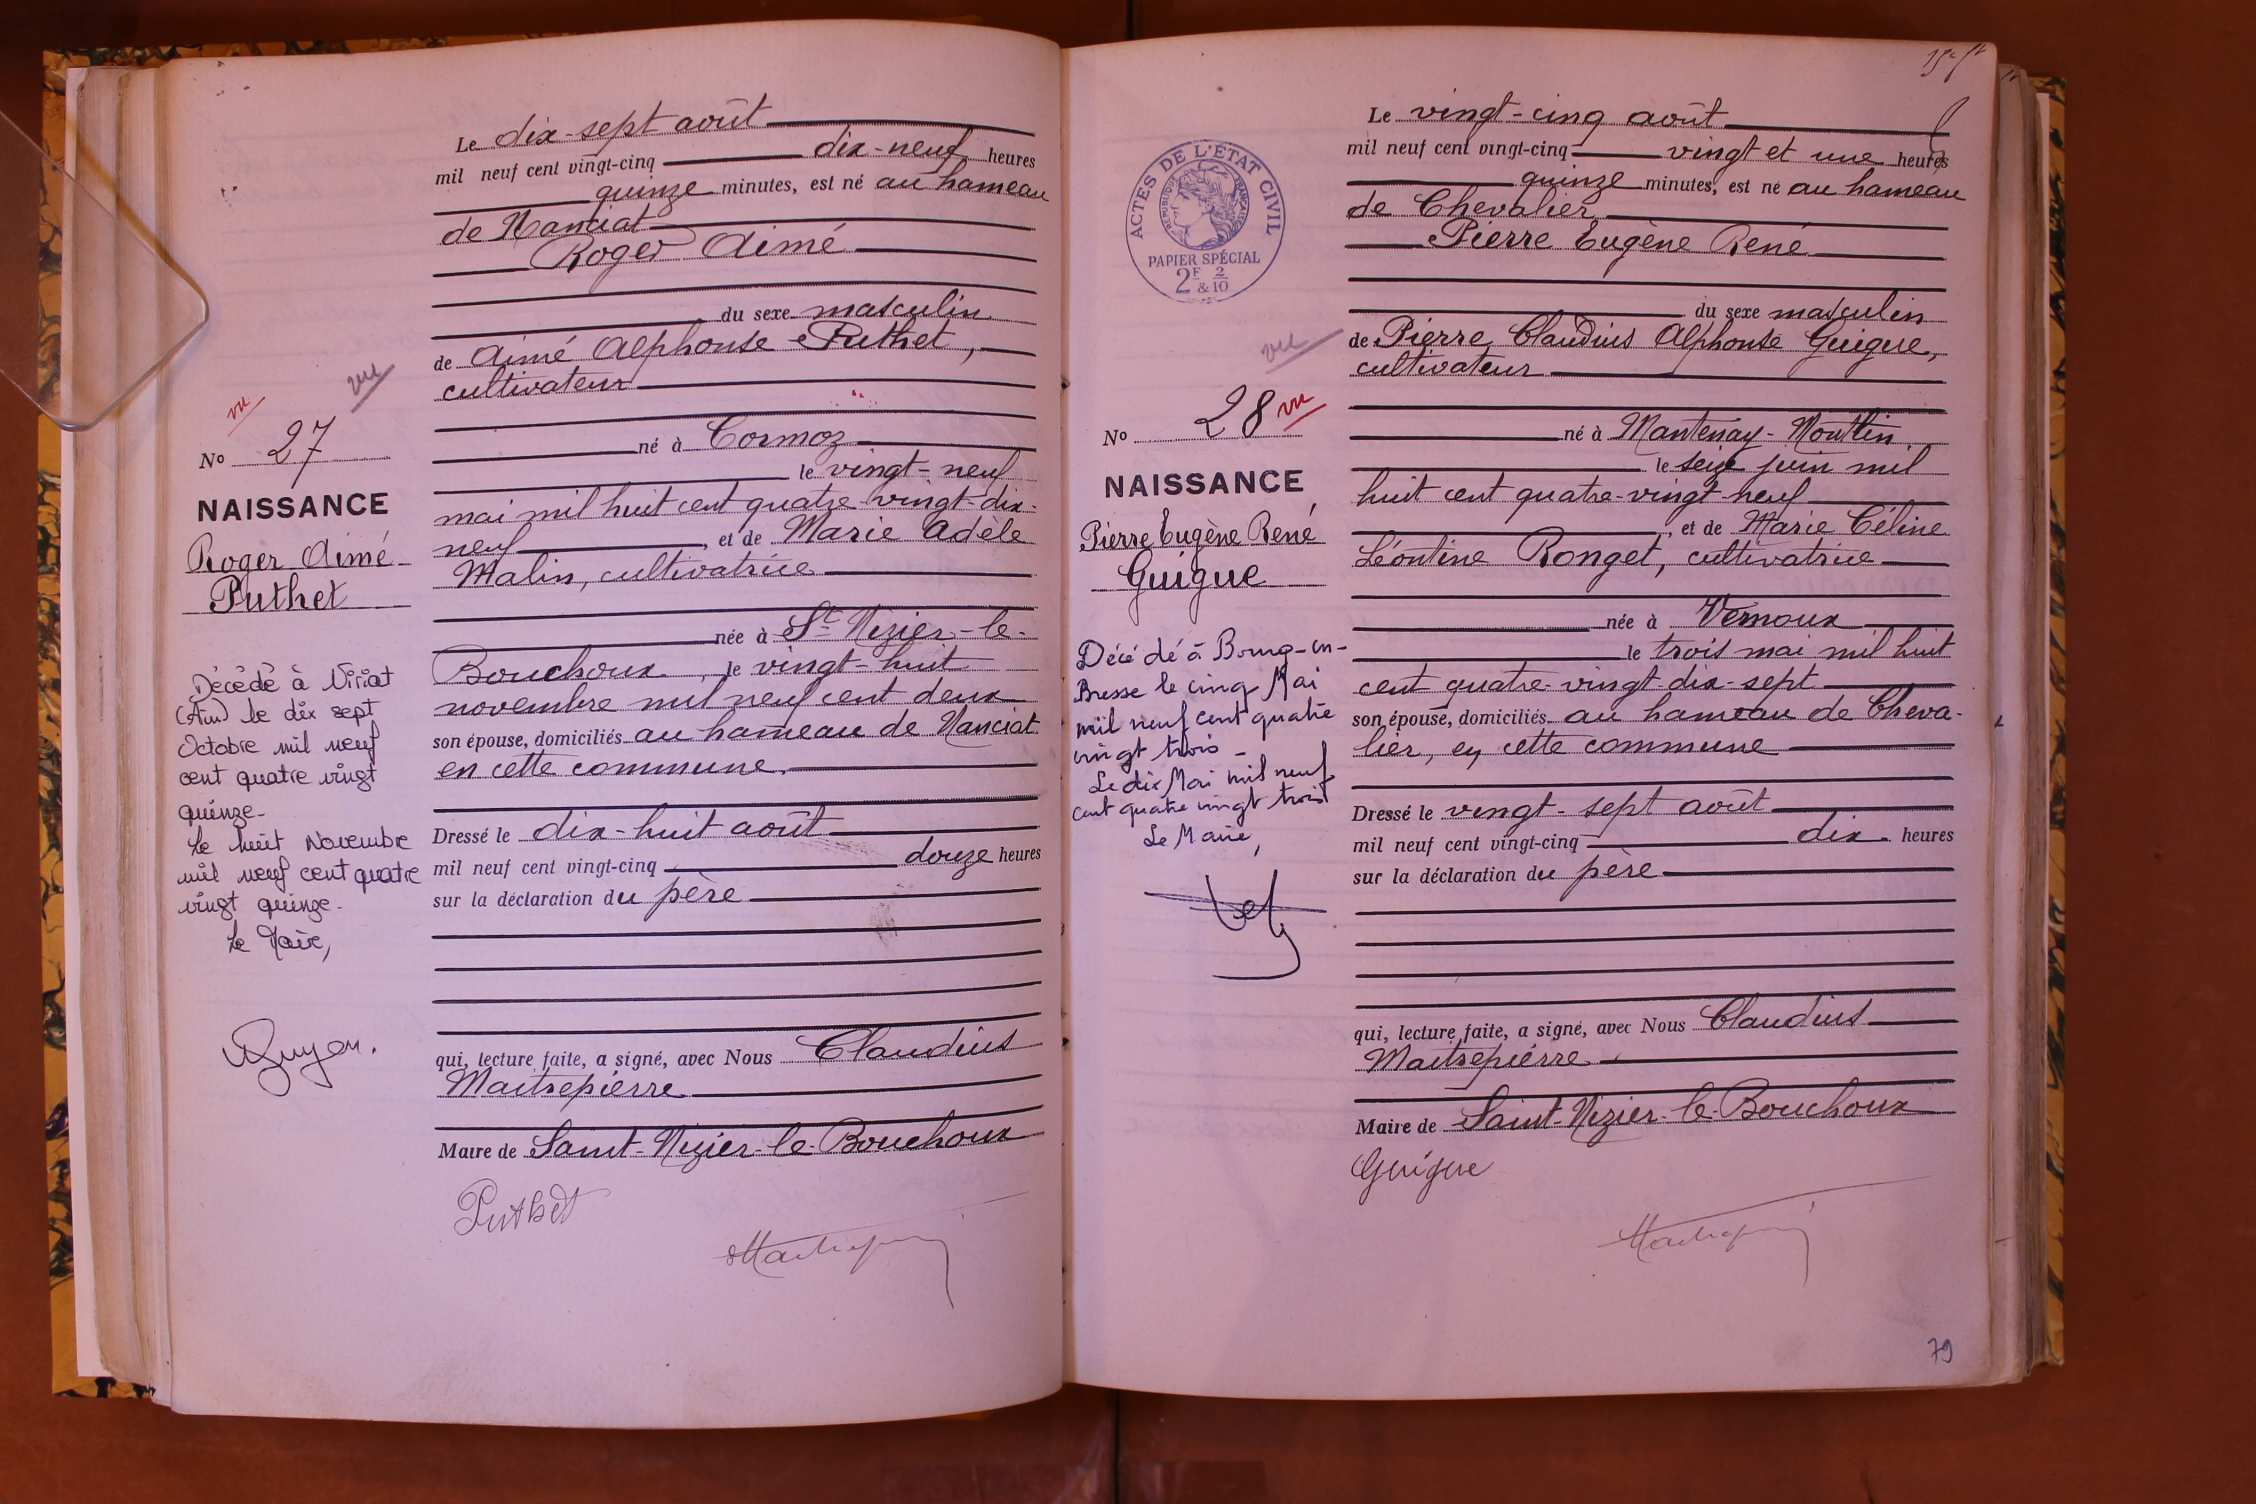 Le dix-sept août
mil neuf cent vingt-cinq dix-neuf heures
quinze minutes, est né au hameau
de Nanciat
Roger Aimé
du sexe masculin
de Aimé Alphonse Puthet,
cultivateur
né à Cormoz
le vingt-neuf
mai mil huit cent quatre-vingt-dix-
neuf, et de Marie Adèle
Malin, cultivatrice
née à St Nizier-le-
Bouchoux, le vingt-huit
novembre mil neuf cent deux
son épouse, domiciliés au hameau de Nanciat
en cette commune.
Dressé le dix-huit août
mil neuf cent vingt-cinq douze heures
sur la déclaration du père
qui, lecture faite, a signé, avec Nous Claudius
Maitrepierre
Maire de Saint-Nizier-le-Bouchoux
Puthet
vu
vu
No 27
NAISSANCE
Roger Aimé
Puthet
Décédé à Viriat
(Ain) le dix sept
Octobre mil neuf
cent quatre vingt
quinze-
Le huit Novembre
mil neuf cent quatre
vingt quinze-
Le Maire,
Le vingt-cinq août
mil neuf cent vingt-cinq vingt et une heures
quinze minutes, est né au hameau
de Chevalier
Pierre Eugène René
du sexe masculin
de Pierre Claudius Alphonse Guigue,
cultivateur
né à Mantenay-Montlin
le seize juin mil
huit cent quatre-vingt-neuf
, et de Marie Céline
Léontine Ronget, cultivatrice
née à Vernoux
le trois mai mil huit
cent quatre-vingt-dix-sept
son épouse, domiciliés au hameau de Cheva-
lier, en cette commune
Dressé le vingt-sept août
mil neuf cent vingt-cinq dix heures
sur la déclaration du père
qui, lecture faite, a signé, avec Nous Claudius
Maitrepierre
Maire de Saint-Nizier-le-Bouchoux
Guigue
ACTES DE L'ÉTAT CIVIL
RÉPUBLIQUE FRANÇAISE
PAPIER SPÉCIAL
2F & 2/10
vu
No 28 vu
NAISSANCE
Pierre Eugène René
Guigue
Décédé à Bourg-en-
Bresse le cinq Mai
mil neuf cent quatre
vingt trois -
Le dix Mai mil neuf
cent quatre vingt trois
Le Maire,
79